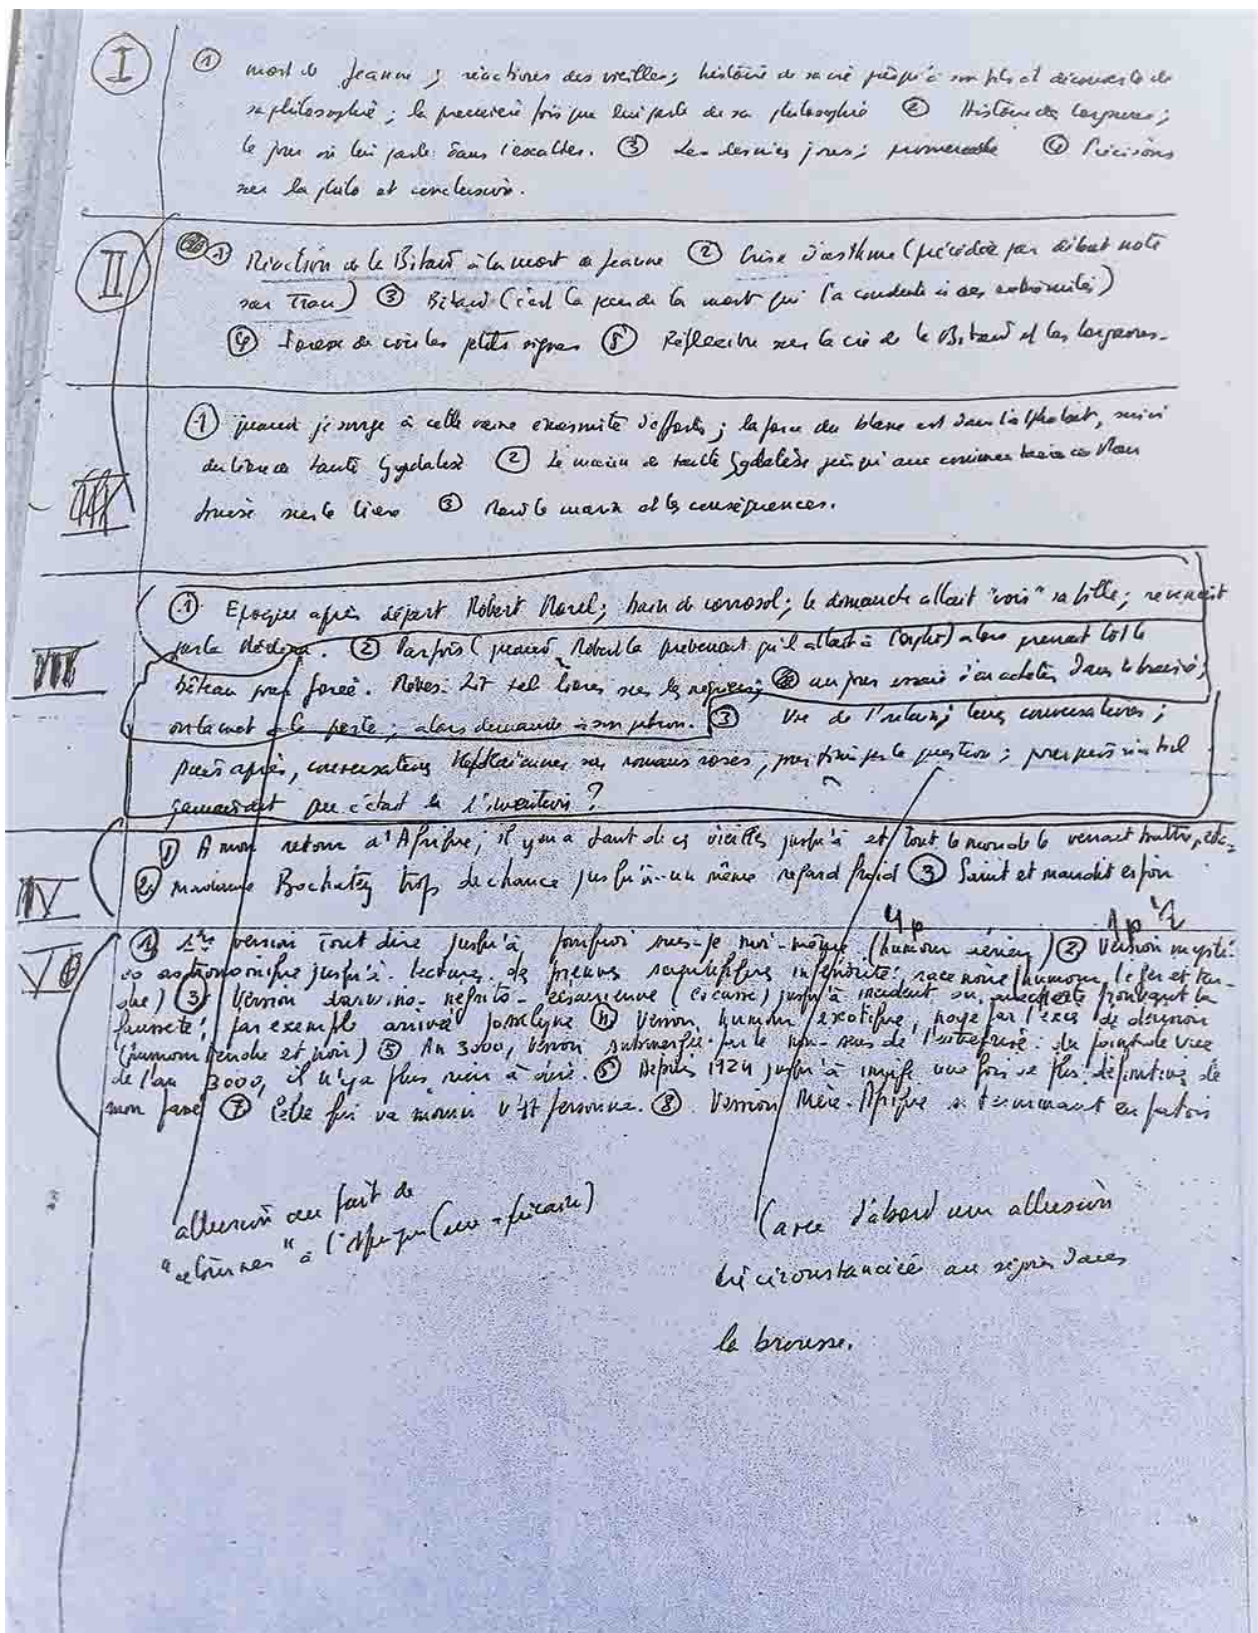 I
① mort de Jeanne ; réactions des vieilles ; histoire de sa vie jusqu'à son fils et découverte de
sa philosophie ; la première fois que lui parle de sa philosophie ② Histoire des
le jour où lui parle dans l'escalier. ③ Les derniers jours ; promenade ④ Précisions
sur la philo et conclusion.
II
① Réaction de la Bitard à la mort de Jeanne ② Crise d'asthme (précédée par début note
sur Trau) ③ Bitard (c'est la peur de la mort qui l'a conduite à ces extrémités)
④ de voir les petits signes ⑤ Réflexion sur la vie de la Bitard et les
① quand je songe à cette vaine énormité d'efforts ; la force du blanc est dans l'alphabet, suivi
du livre de tante Gydalèse ② Le marin de tante Gydalèse jusqu'aux commentaires de Man
Louise sur le livre ③ Mort le marin et les conséquences.
III
① Epoque après départ Robert Morel ; bain de corossol ; le dimanche allait "voir" sa fille ; revenait
par la ② Parfois (quand Robert la prévenait qu'il allait à ) alors prenait tôt le
bateau par force. Robert lit tel livres sur les nègres ; un jour essaie d'en acheter dans le ;
on la met à la porte ; alors demande à son patron. ③ Vie de ; leurs conversations ;
puis après, conversations sur romans roses, par la question ; pourquoi
demandait que c'était là l'invention ?
IV
① A mon retour d'Afrique ; il y en a tant de ces vieilles jusqu'à et tout le monde le venait battre, etc.
② madame Bochatay trop de chance jusqu'à un même regard froid ③ Saint et maudit espoir
V
4p 1p ½
① 1re version Tout dire jusqu'à pourquoi suis-je moi-même (humour sérieux) ② Version
astronomique jusqu'à lectures de preuves scientifiques infériorité race noire (humour léger et
) ③ Version darwino-négrito- (cocasse) jusqu'à incident ou anecdote prouvant la
fausseté ; par exemple arrivée Josselyne ④ Version humour exotique, noyé par l'excès de dérision
(humour tendre et noir) ⑤ An 3000, version submergée par le non-sens de l'entreprise : du point de vue
de l'an 3000, il n'y a plus rien à dire. ⑥ Depuis 1924 jusqu'à une fois de plus, définitive, de
mon passé ⑦ Celle qui va mourir n'est personne. ⑧ Version Mère-Afrique se terminant en patois
allusion au fait de
"retourner" à l'Afrique
(avec d'abord une allusion
circonstanciée au séjour dans
la brousse.